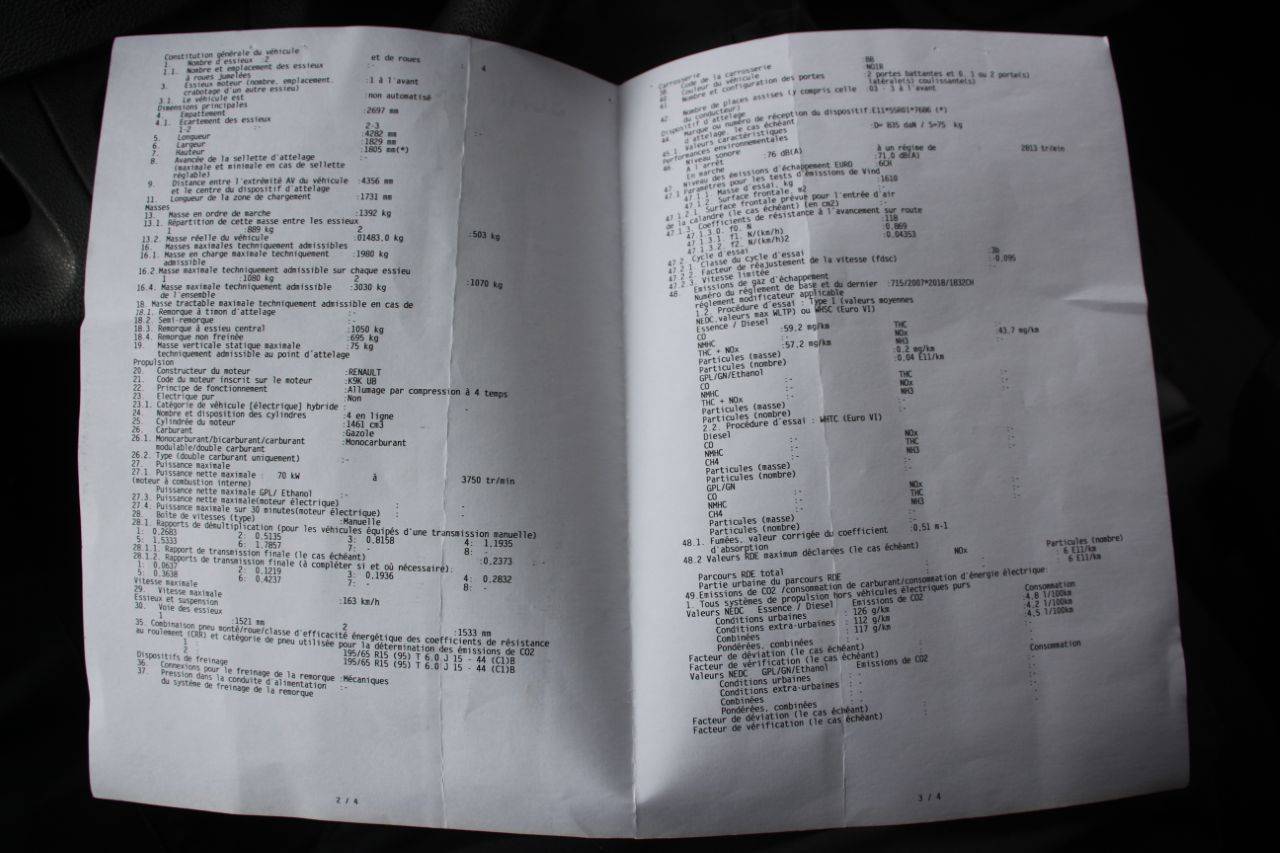 Constitution générale du véhicule
1. Nombre d'essieux :2 et de roues : 4
1.1. Nombre et emplacement des essieux :-
à roues jumelées
3. Essieux moteur (nombre, emplacement, :1 à l'avant
crabotage d'un autre essieu)
3.1. Le véhicule est :non automatisé
Dimensions principales
4. Empattement :2697 mm
4.1. Ecartement des essieux
1-2 :- 2-3 :-
5. Longueur :4282 mm
6. Largeur :1829 mm
7. Hauteur :1805 mm(*)
8. Avancée de la sellette d'attelage :-
(maximale et minimale en cas de sellette
réglable)
9. Distance entre l'extrémité AV du véhicule :4356 mm
et le centre du dispositif d'attelage
11. Longueur de la zone de chargement :1731 mm
Masses
13. Masse en ordre de marche :1392 kg
13.1. Répartition de cette masse entre les essieux
1 :889 kg 2 :503 kg
13.2. Masse réelle du véhicule :01483.0 kg
16. Masses maximales techniquement admissibles
16.1. Masse en charge maximale techniquement :1980 kg
admissible
16.2.Masse maximale techniquement admissible sur chaque essieu
1 :1080 kg 2 :1070 kg
16.4. Masse maximale techniquement admissible :3030 kg
de l'ensemble
18. Masse tractable maximale techniquement admissible en cas de
18.1. Remorque à timon d'attelage :-
18.2. Semi-remorque :-
18.3. Remorque à essieu central :1050 kg
18.4. Remorque non freinée :695 kg
19. Masse verticale statique maximale :75 kg
techniquement admissible au point d'attelage
Propulsion
20. Constructeur du moteur :RENAULT
21. Code du moteur inscrit sur le moteur :K9K U8
22. Principe de fonctionnement :Allumage par compression à 4 temps
23. Electrique pur :Non
23.1. Catégorie de véhicule [électrique] hybride : -
24. Nombre et disposition des cylindres :4 en ligne
25. Cylindrée du moteur :1461 cm3
26. Carburant :Gazole
26.1. Monocarburant/bicarburant/carburant :Monocarburant
modulable/double carburant
26.2. Type (double carburant uniquement) :-
27. Puissance maximale
27.1. Puissance nette maximale : 70 kW à 3750 tr/min
(moteur à combustion interne)
Puissance nette maximale GPL/ Ethanol :-
27.3. Puissance nette maximale(moteur électrique) :
27.4. Puissance maximale sur 30 minutes(moteur électrique) :
28. Boîte de vitesses (type) :Manuelle
28.1. Rapports de démultiplication (pour les véhicules équipés d'une transmission manuelle)
1: 0.2683 2: 0.5135 3: 0.8158 4: 1.1935
5: 1.5333 6: 1.7857 7: - 8: -
28.1.1. Rapport de transmission finale (le cas échéant) :0.2373
28.1.2. Rapports de transmission finale (à compléter si et où nécessaire):
1: 0.0637 2: 0.1219 3: 0.1936 4: 0.2832
5: 0.3638 6: 0.4237 7: - 8: -
Vitesse maximale
29. Vitesse maximale :163 km/h
Essieux et suspension
30. Voie des essieux
1 :1521 mm 2 :1533 mm
35. Combinaison pneu monté/roue/classe d'efficacité énergétique des coefficients de résistance
au roulement (CRR) et catégorie de pneu utilisée pour la détermination des émissions de CO2
1 : 195/65 R15 (95) T 6.0 J 15 - 44 (C1)B
2 : 195/65 R15 (95) T 6.0 J 15 - 44 (C1)B
Dispositifs de freinage
36. Connexions pour le freinage de la remorque :Mécaniques
37. Pression dans la conduite d'alimentation :-
du système de freinage de la remorque
2 / 4
Carrosserie
38 Code de la carrosserie :BB
40 Couleur du véhicule :NOIR
41 Nombre et configuration des portes :2 portes battantes et 0, 1 ou 2 porte(s)
latérale(s) coulissante(s)
42 Nombre de places assises (y compris celle :03 - 3 à l'avant
du conducteur)
Dispositif d'attelage
44 Marque ou numéro de réception du dispositif:E11*55R01*7606 (*)
d'attelage, le cas échéant
45.1 Valeurs caractéristiques :D= 835 daN / S=75 kg
Performances environnementales
46. Niveau sonore
A l'arrêt :76 dB(A) à un régime de 2813 tr/min
En marche :71.0 dB(A)
47. Niveau des émissions d'échappement EURO :6CH
47.1 Paramètres pour les tests d'émissions de Vind
47.1.1. Masse d'essai, kg :1610
47.1.2. Surface frontale, m2 :-
47.1.2.1. Surface frontale prévue pour l'entrée d'air
de la calandre (le cas échéant) (en cm2) :-
47.1.3. Coefficients de résistance à l'avancement sur route
47.1.3.0. f0, N :118
47.1.3.1. f1, N/(km/h) :0.869
47.1.3.2. f2, N/(km/h)2 :0.04353
47.2. Cycle d'essai
47.2.1. Classe du cycle d'essai :3b
47.2.2. Facteur de réajustement de la vitesse (fdsc) :-0,095
47.2.3. Vitesse limitée
48. Emissions de gaz d'échappement
Numéro du règlement de base et du dernier :715/2007*2018/1832CH
règlement modificateur applicable
1.2. Procédure d'essai : Type 1 (valeurs moyennes
NEDC,valeurs max WLTP) ou WHSC (Euro VI)
Essence / Diesel
CO :59.2 mg/km THC :-
NMHC :- NOx :43.7 mg/km
THC + NOx :57.2 mg/km NH3 :-
Particules (masse) :0.2 mg/km
Particules (nombre) :0.04 E11/km
GPL/GN/Ethanol
CO :- THC :-
NMHC :- NOx :-
THC + NOx :- NH3 :-
Particules (masse) :-
Particules (nombre) :-
2.2. Procédure d'essai : WHTC (Euro VI)
Diesel
CO :- NOx :-
NMHC :- THC :-
CH4 :- NH3 :-
Particules (masse) :-
Particules (nombre) :-
GPL/GN
CO :- NOx :-
NMHC :- THC :-
CH4 :- NH3 :-
Particules (masse) :-
Particules (nombre) :-
48.1. Fumées, valeur corrigée du coefficient :0.51 m-1
d'absorption
48.2 Valeurs RDE maximum déclarées (le cas échéant)
NOx Particules (nombre)
Parcours RDE total : : 6 E11/km
Partie urbaine du parcours RDE : : 6 E11/km
49.Emissions de CO2 /consommation de carburant/consommation d'énergie électrique:
1. Tous systèmes de propulsion hors véhicules électriques purs
Valeurs NEDC Essence / Diesel Emissions de CO2 Consommation
Conditions urbaines : 126 g/km :4.8 l/100km
Conditions extra-urbaines : 112 g/km :4.2 l/100km
Combinées : 117 g/km :4.5 l/100km
Pondérées, combinées : - :-
Facteur de déviation (le cas échéant) :
Facteur de vérification (le cas échéant) :
Valeurs NEDC GPL/GN/Ethanol Emissions de CO2 Consommation
Conditions urbaines : - :-
Conditions extra-urbaines : - :-
Combinées : - :-
Pondérées, combinées : - :-
Facteur de déviation (le cas échéant) :
Facteur de vérification (le cas échéant) :
3 / 4